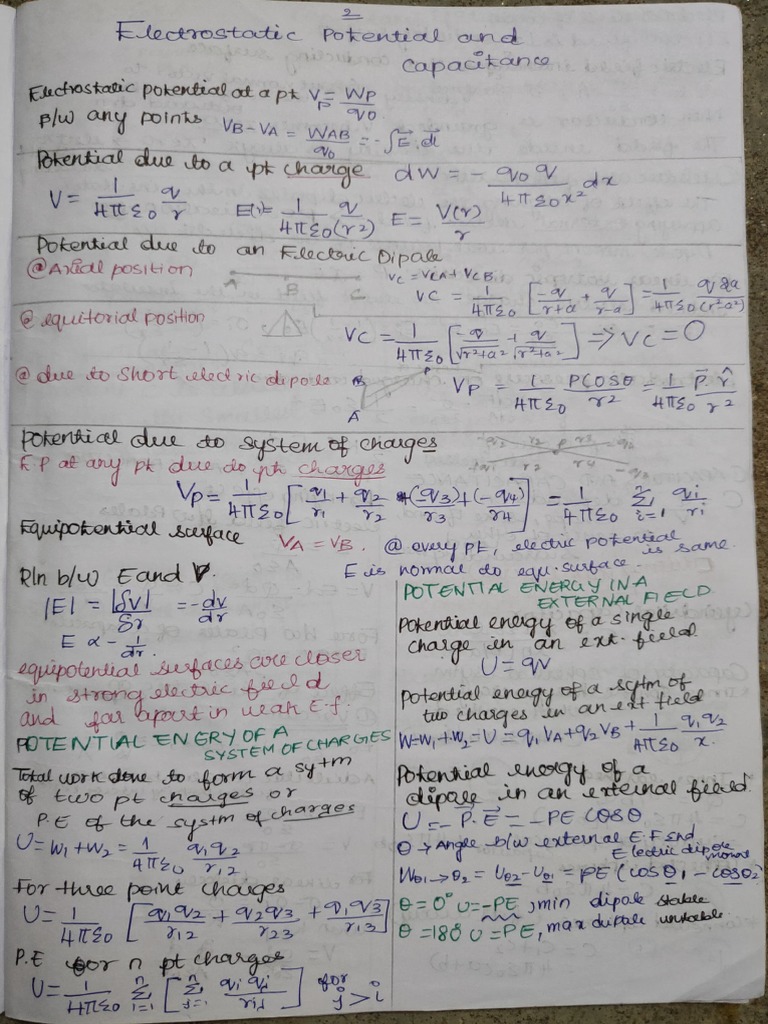 2
Electrostatic Potential and
Capacitance
Electrostatic potential at a pt V_P = W_P/q0
B/w any points V_B - V_A = W_AB/q0 = -∫E⃗.dl⃗
Potential due to a pt charge dW = - q0 q/4πε0x² dx
V = 1/4πε0 q/r E(r)= 1/4πε0 q/(r²) E = V(r)/r
Potential due to an Electric Dipole
@ Axial position A B C VC = VCA + VCB
VC = 1/4πε0 [-q/r+a + q/r-a] = 1/4πε0 q2a/(r²-a²)
@ equitorial position VC = 1/4πε0 [-q/√r²+a² + q/√r²+a²] => VC = 0
@ due to short electric dipole B A P VP = 1/4πε0 PCOSθ/r² = 1/4πε0 P⃗.r̂/r²
Potential due to system of charges
E P at any pt due do pt charges
VP = 1/4πε0 [q1/r1 + q2/r2 + (q3)/r3 + (-q4)/r4] = 1/4πε0 Σ i=1 n qi/ri
Equipotential surface VA = VB. @ every pt, electric potential is same.
E is normal to equ. surface.
Rln b/w E and V.
|E| = |δV|/δr = -dv/dr
E ∝ - 1/dr.
equipotential surfaces are closer
in strong electric field
and far apart in weak E.f.
POTENTIAL ENERY OF A
SYSTEM OF CHARGES
Total work done to form a sytm
of two pt charges or
P.E of the systm of charges
U = W1 + W2 = 1/4πε0 q1q2/r12
For three point charges
U = 1/4πε0 [q1q2/r12 + q2q3/r23 + q1q3/r13]
P.E for n pt charges
U = 1/4πε0 Σ i=1 n [Σ j=1 n qi qj/rij] for j>i
POTENTIAL ENERGY IN A
EXTERNAL FIELD
Potential energy of a single
charge in an ext. field
U = qV
Potential energy of a sytm of
two charges in an ext field
W=W1+W2=U=q1VA+q2VB+ 1/4πε0 q1q2/r.
Potential energy of a
dipole in an external field.
U = -P⃗.E⃗ = -PE COSθ
θ → Angle b/w external E.F and
Electric dipole moment
Wθ1→θ2 = Uθ2-Uθ1 = PE(cosθ1 - cosθ2)
θ = 0° U = -PE, min dipole stable
θ = 180° U = PE, max dipole unstable